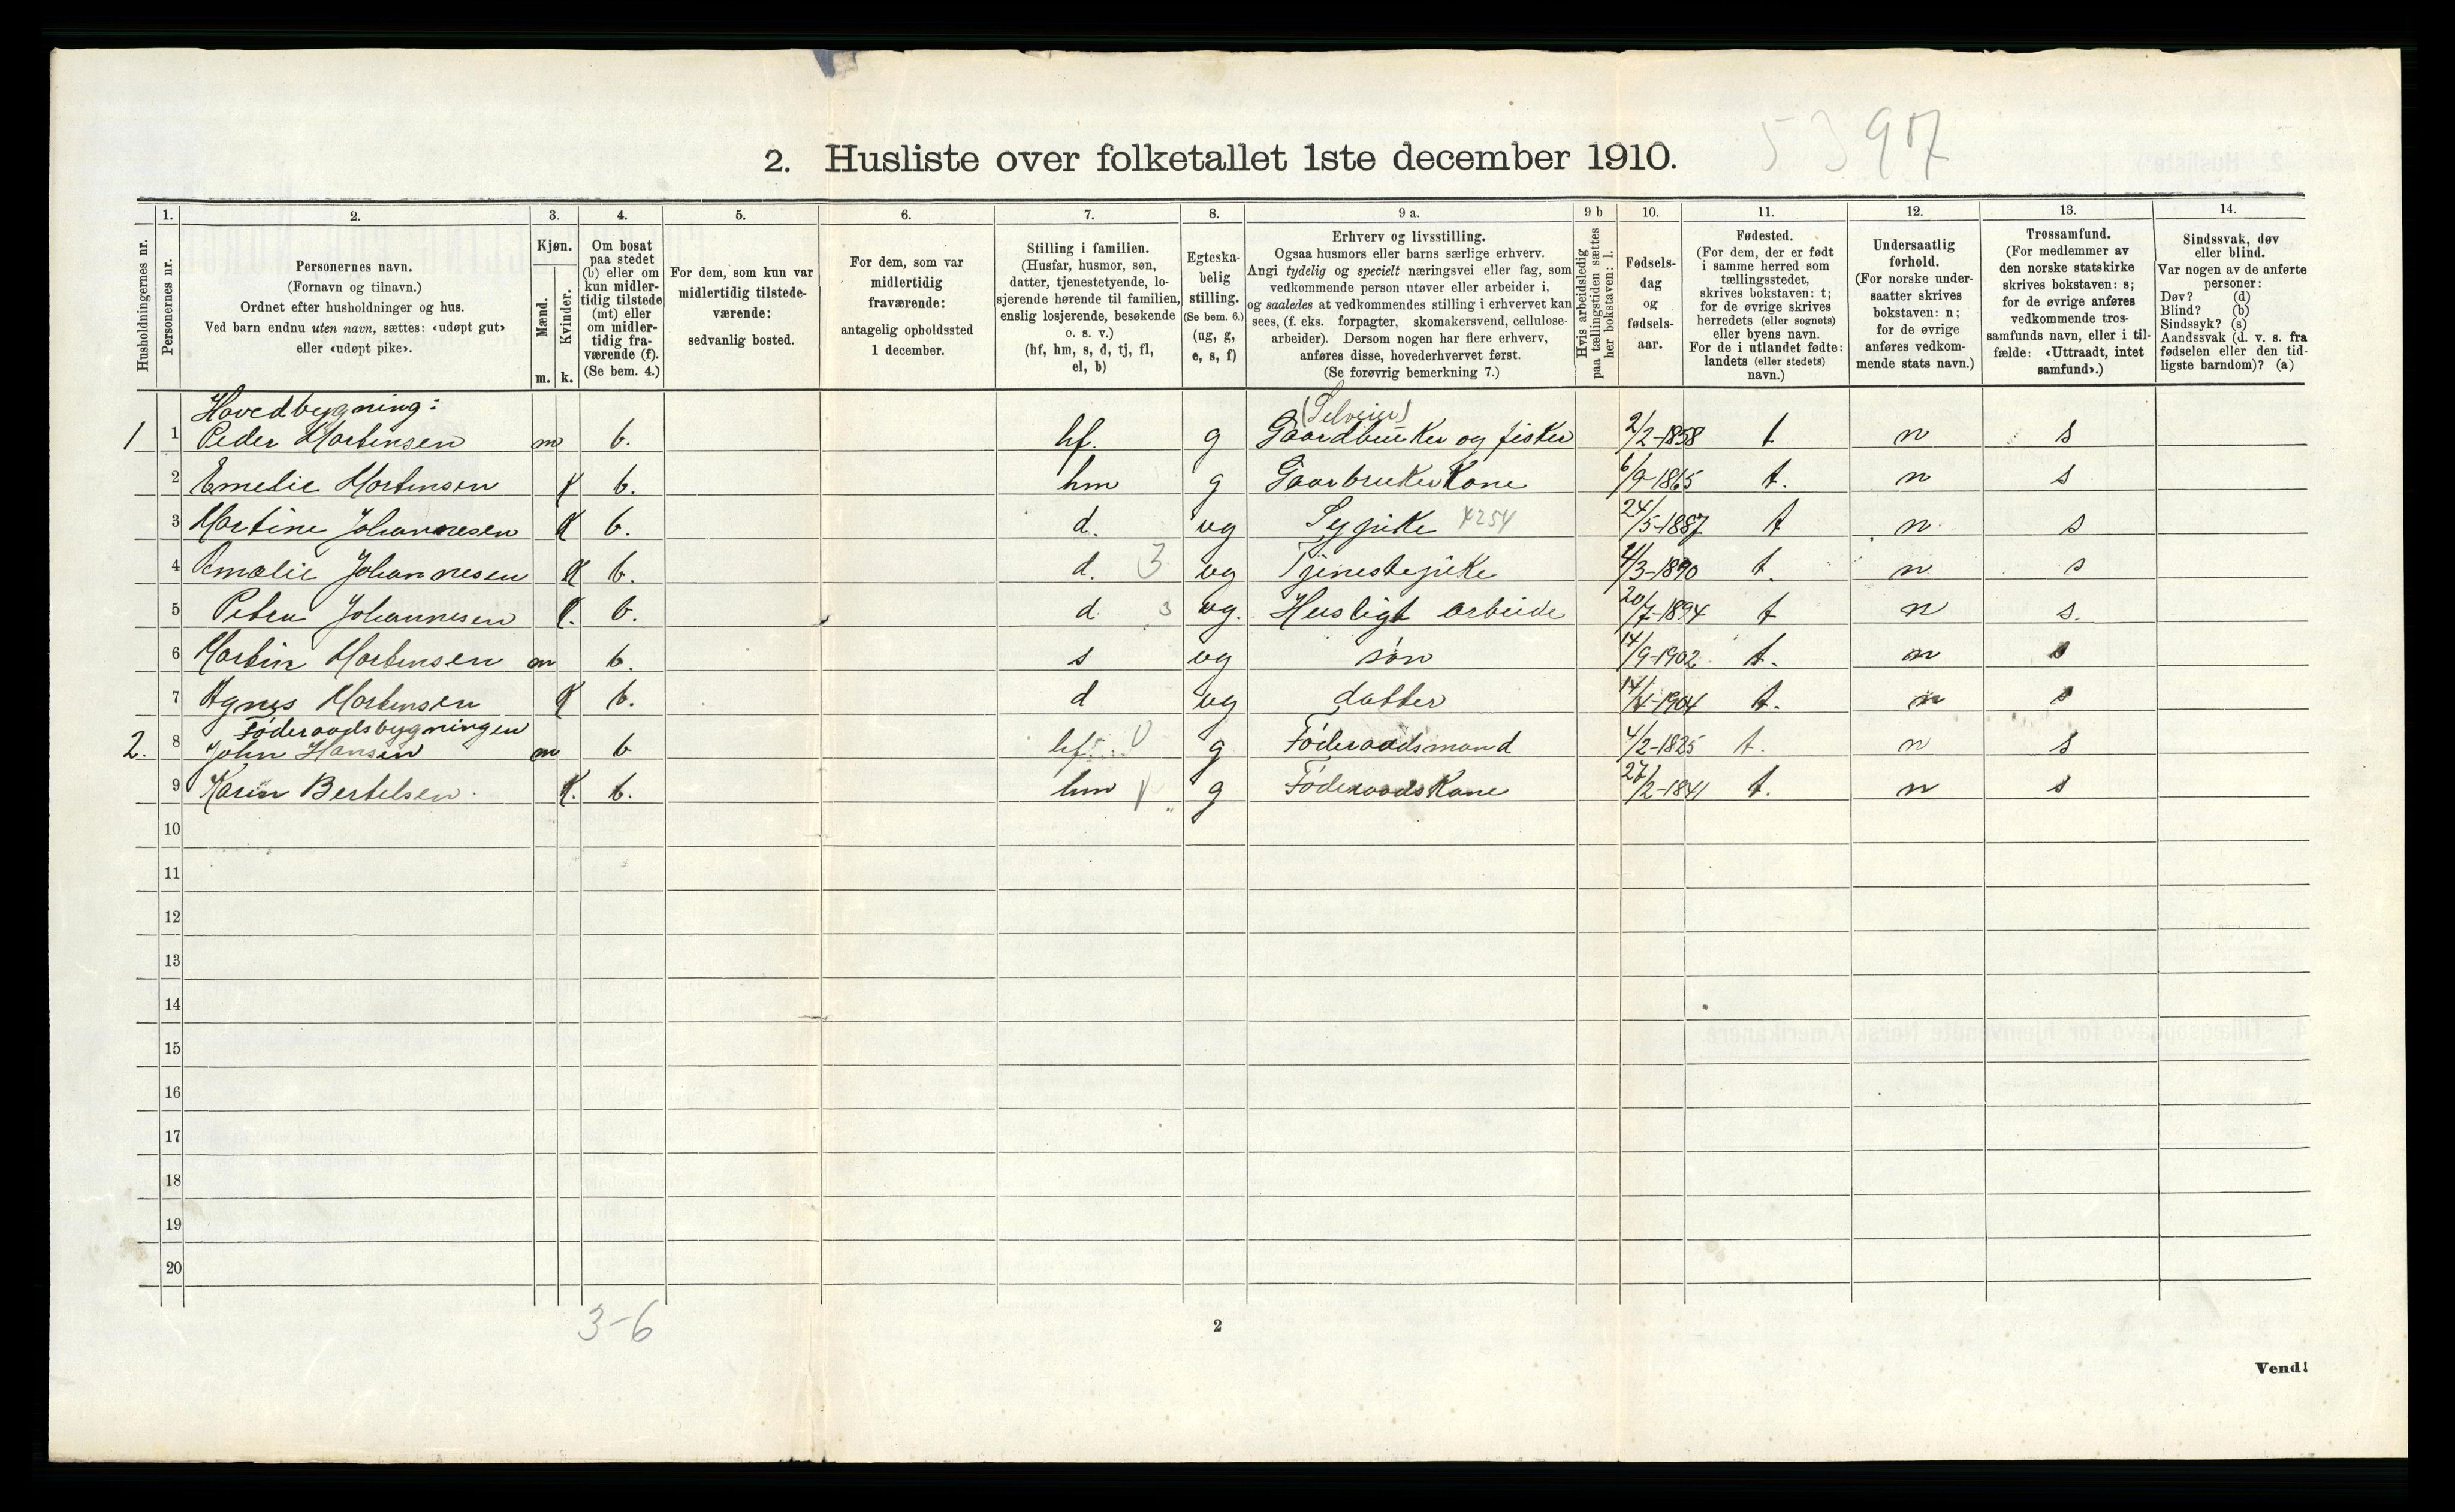 5397
2. Husliste over folketallet 1ste december 1910.
1. 2. 3. 4. 5. 6. 7. 8. 9 a. 9 b 10. 11. 12. 13. 14.
Husholdningernes nr.
Personernes nr.
Personernes navn.
(Fornavn og tilnavn.)
Ordnet efter husholdninger og hus.
Ved barn endnu uten navn, sættes: «udøpt gut»
eller «udøpt pike».
Kjøn.
Mænd.
Kvinder.
m. k.
Om bosat
paa stedet
(b) eller om
kun midler-
tidig tilstede
(mt) eller
om midler-
tidig fra-
værende (f).
(Se bem. 4.)
For dem, som kun var
midlertidig tilstede-
værende:
sedvanlig bosted.
For dem, som var
midlertidig
fraværende:
antagelig opholdssted
1 december.
Stilling i familien.
(Husfar, husmor, søn,
datter, tjenestetyende, lo-
sjerende hørende til familien,
enslig losjerende, besøkende
o. s. v.)
(hf, hm, s, d, tj, fl,
el, b)
Egteska-
belig
stilling.
(Se bem. 6.)
(ug, g,
e, s, f)
Erhverv og livsstilling.
Ogsaa husmors eller barns særlige erhverv.
Angi tydelig og specielt næringsvei eller fag, som
vedkommende person utøver eller arbeider i,
og saaledes at vedkommendes stilling i erhvervet kan
sees, (f. eks. forpagter, skomakersvend, cellulose-
arbeider). Dersom nogen har flere erhverv,
anføres disse, hovederhvervet først.
(Se forøvrig bemerkning 7.)
Hvis arbeidsledig
paa tællingstiden sættes
her bokstaven: l.
Fødsels-
dag
og
fødsels-
aar.
Fødested.
(For dem, der er født
i samme herred som
tællingsstedet,
skrives bokstaven: t;
for de øvrige skrives
herredets (eller sognets)
eller byens navn.
For de i utlandet fødte:
landets (eller stedets)
navn.)
Undersaatlig
forhold.
(For norske under-
saatter skrives
bokstaven: n;
for de øvrige
anføres vedkom-
mende stats navn.)
Trossamfund.
(For medlemmer av
den norske statskirke
skrives bokstaven: s;
for de øvrige anføres
vedkommende tros-
samfunds navn, eller i til-
fælde: «Uttraadt, intet
samfund».)
Sindssvak, døv
eller blind.
Var nogen av de anførte
personer:
Døv? (d)
Blind? (b)
Sindssyk? (s)
Aandssvak (d. v. s. fra
fødselen eller den tid-
ligste barndom)? (a)
Hovedbygning: (Selveier)
1 1 Peder Mortensen m b. hf. g Gaardbruker og fisker 2/2-1858 t n s
2 Emelie Mortensen K b. hm g Gaarbrukerkone 6/9-1865 t. n s
3 Martine Johannesen K b. d. ug Sypike 4254 24/5-1887 t n. s
4 Emalie Johannesen K b. d. 3 ug Tjenestepike 11/3-1890 t. n. s
5 Petra Johannesen K. b. d 3 ug. Husligt arbeide 20/7-1894 t n s.
6 Martin Mortensen m b. s ug søn 14/9-1902 t. n s
7 Agnes Mortensen K b. d ug datter 14/4-1904 t. n s
Föderaadsbygningen
2. 8 John Hansen m b hf. g Föderaadsmand 4/2-1825 t. n s
9 Karen Bertelsen K. b. hm g Föderaadskone 27/2-1841 t. n s
10
11
12
13
14
15
16
17
18
19
20
3-6
2
Vend!